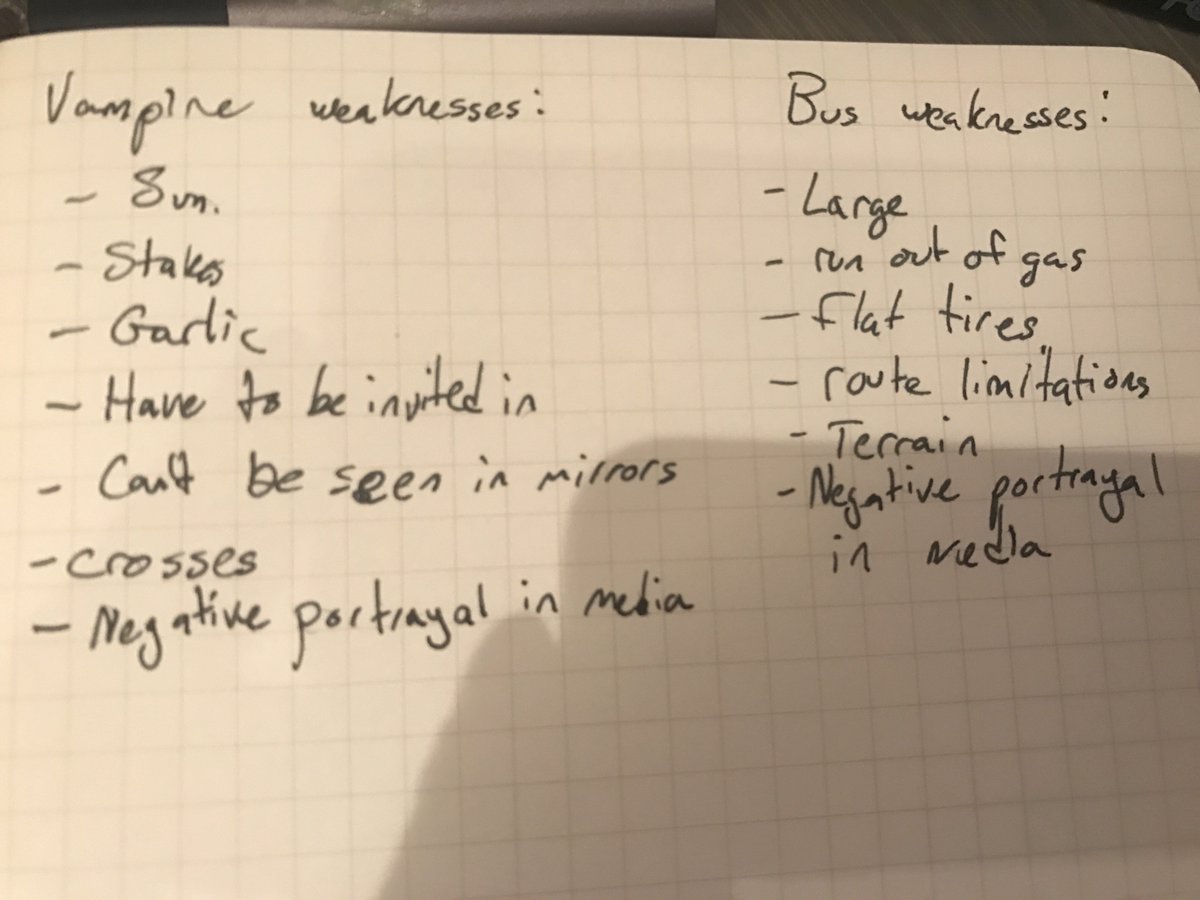 Vampire weaknesses:
- Sun.
- Stakes
- Garlic
- Have to be invited in
- Can't be seen in mirrors
- crosses
- Negative portrayal in media
Bus weaknesses:
- Large
- run out of gas
- flat tires
- route limitations
- Terrain
- Negative portrayal
in media